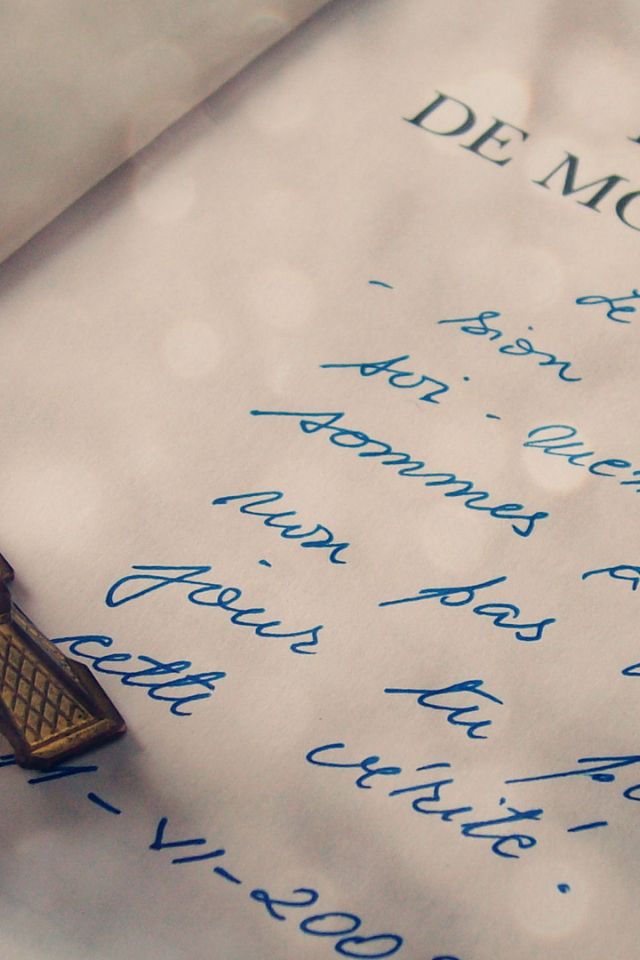 DE MO
- Je
sion
soi-mêm
sommes a
non pas
jour tu
cette vérité.
-VI-200